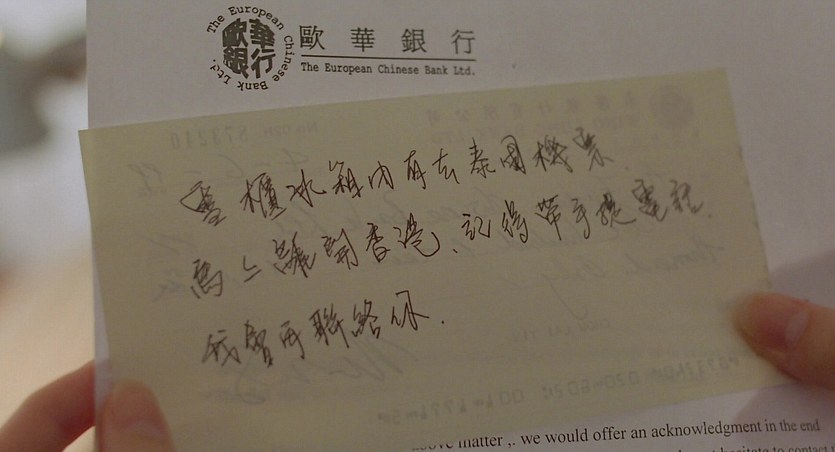 The European Chinese Bank Ltd.
歐華銀行
歐華銀行
The European Chinese Bank Ltd.
雪櫃冰箱內有去泰國機票、
馬上離開香港、記得帶手提電話、
我會再聯絡你.
above matter ,. we would offer an acknowledgment in the end
hesitate to contact